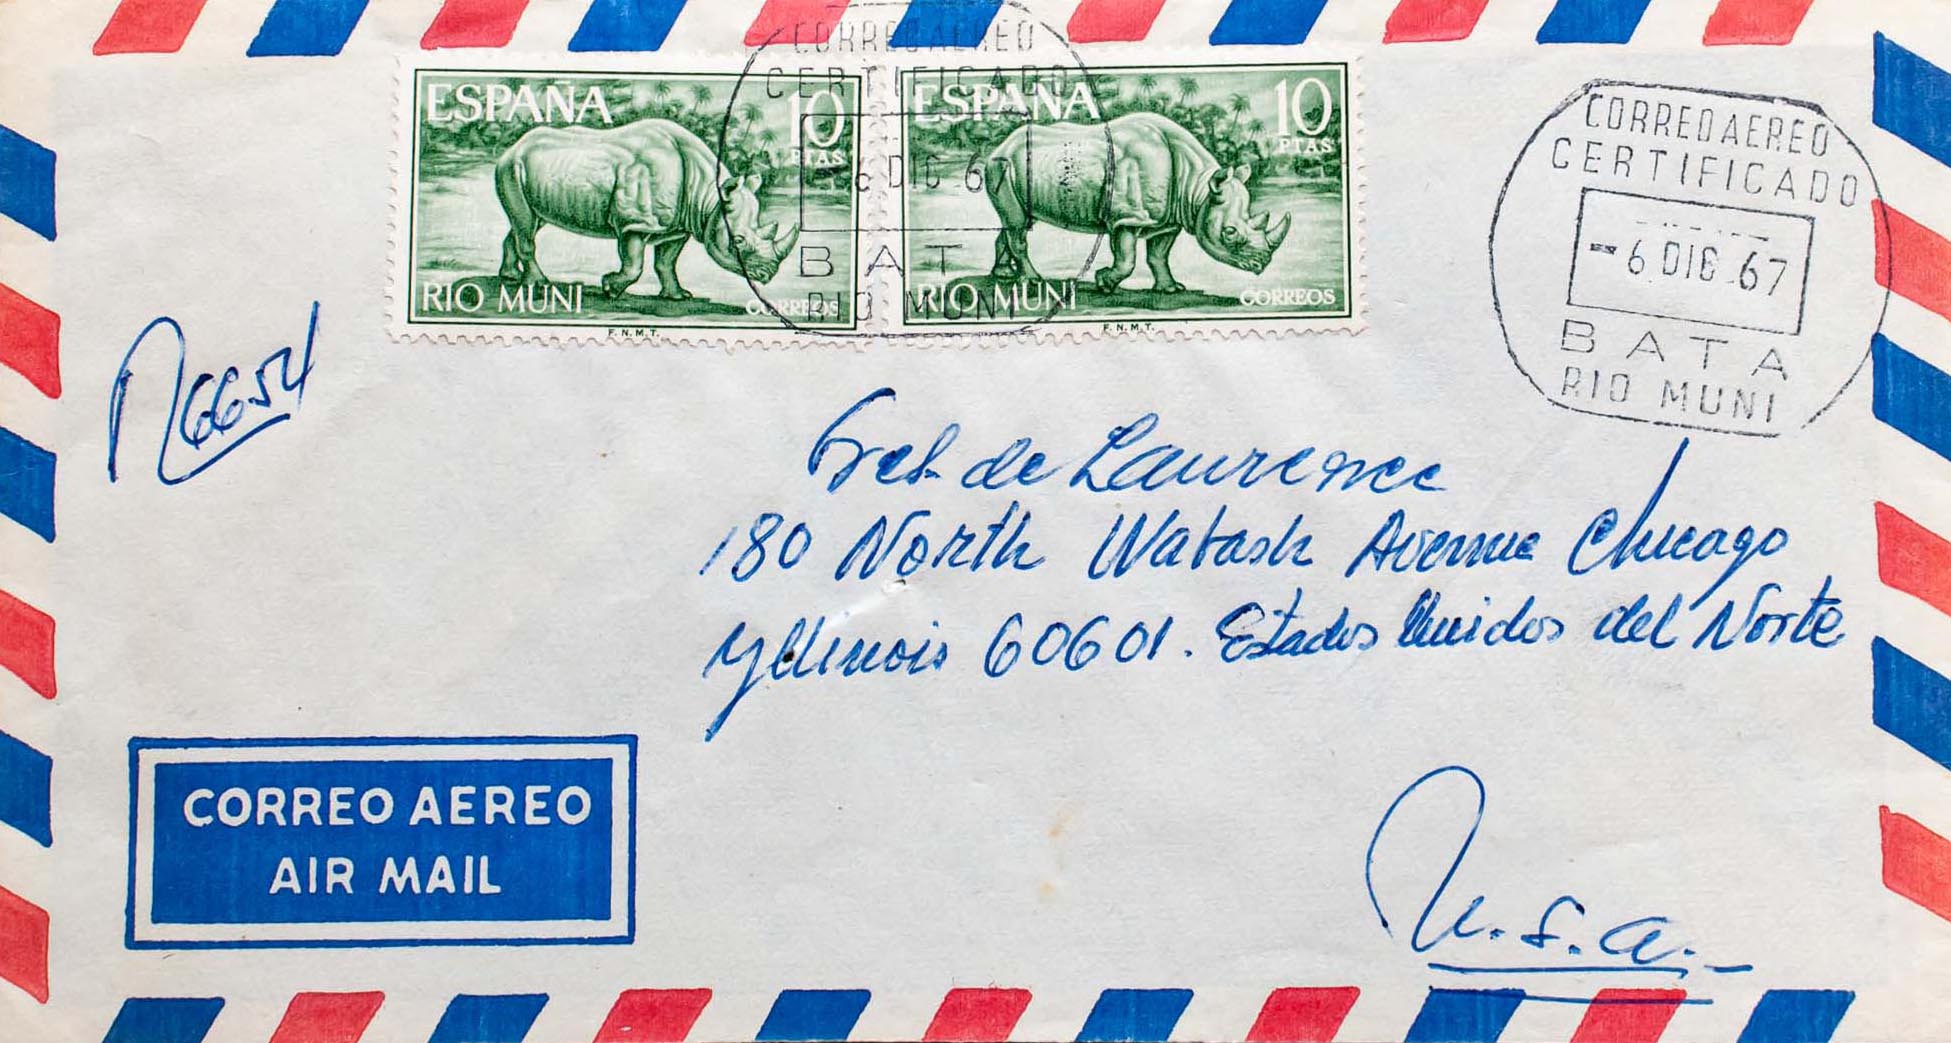 CORREO AEREO
CERTIFICADO
6 DIC 67
BATA
RIO MUNI
ESPAÑA 10 PTAS
RIO MUNI CORREOS
F.N.M.T.
ESPAÑA 10 PTAS
RIO MUNI CORREOS
F.N.M.T.
CORREO AEREO
CERTIFICADO
-6 DIC 67
BATA
RIO MUNI
6654
de Laurence
180 North Watash Avenue Chicago
Yllinois 60601. Estados Unidos del Norte
U.S.A.-
CORREO AEREO
AIR MAIL